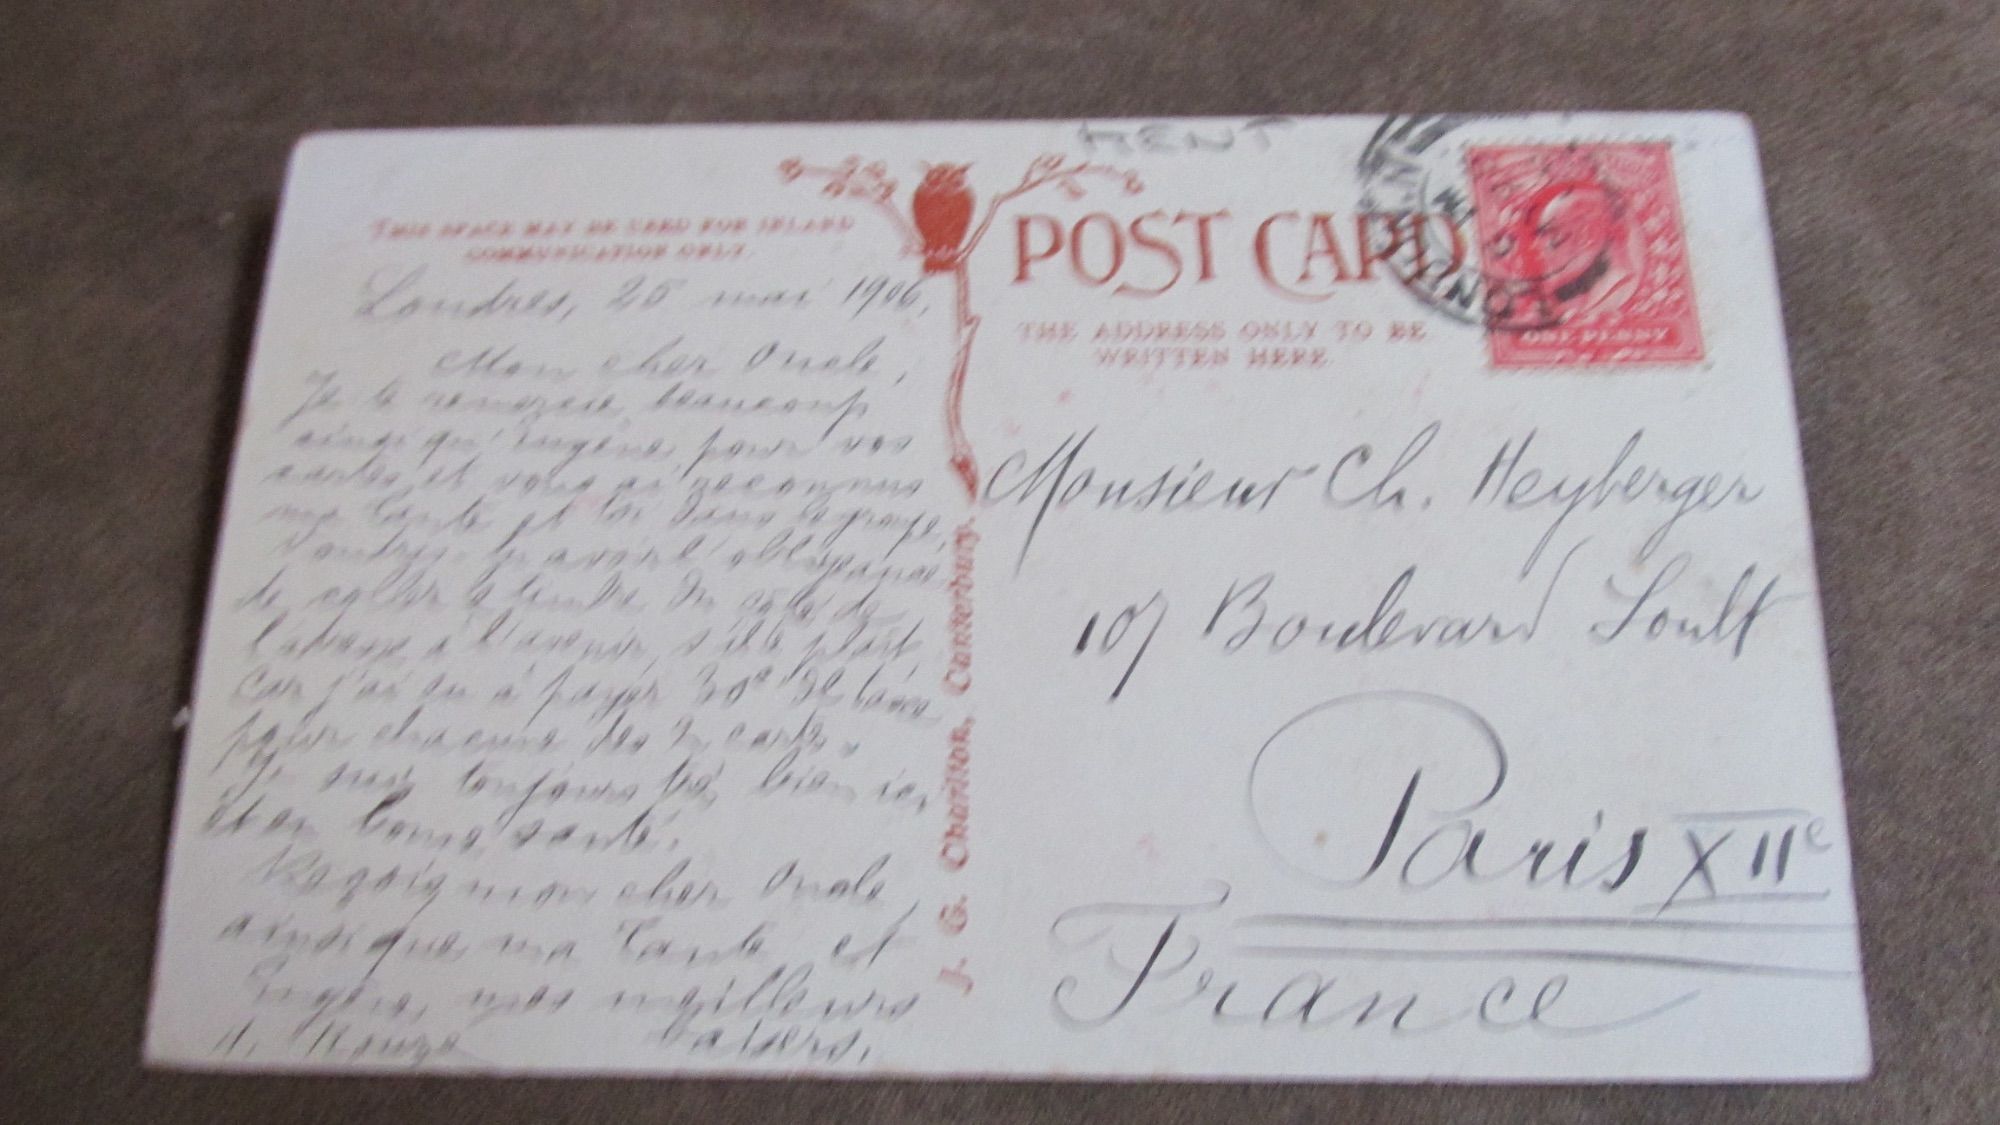 KENT
THIS SPACE MAY BE USED FOR INLAND
COMMUNICATION ONLY.
POST CARD
THE ADDRESS ONLY TO BE
WRITTEN HERE.
LONDON
ONE PENNY
Londres, 25 mai 1906,
Mon cher Oncle,
Je te remercie beaucoup
ainsi qu'Eugène, pour vos
cartes, et vous ai reconnus
ma Tante et toi dans le groupe.
Voudrais-tu avoir l'obligeance
de coller le timbre du côté de
l'adresse à l'avenir, s'il te plait,
car j'ai eu à payer 30c de taxe
pour chacune des 2 cartes.
Je suis toujours très bien ici,
et en bonne santé.
Reçois mon cher Oncle,
ainsi que ma Tante et
Eugène, mes meilleurs
baisers.
J. G. Charlton, Canterbury.
Monsieur Ch. Heyberger
107 Boulevard Soult
Paris XIIe
France